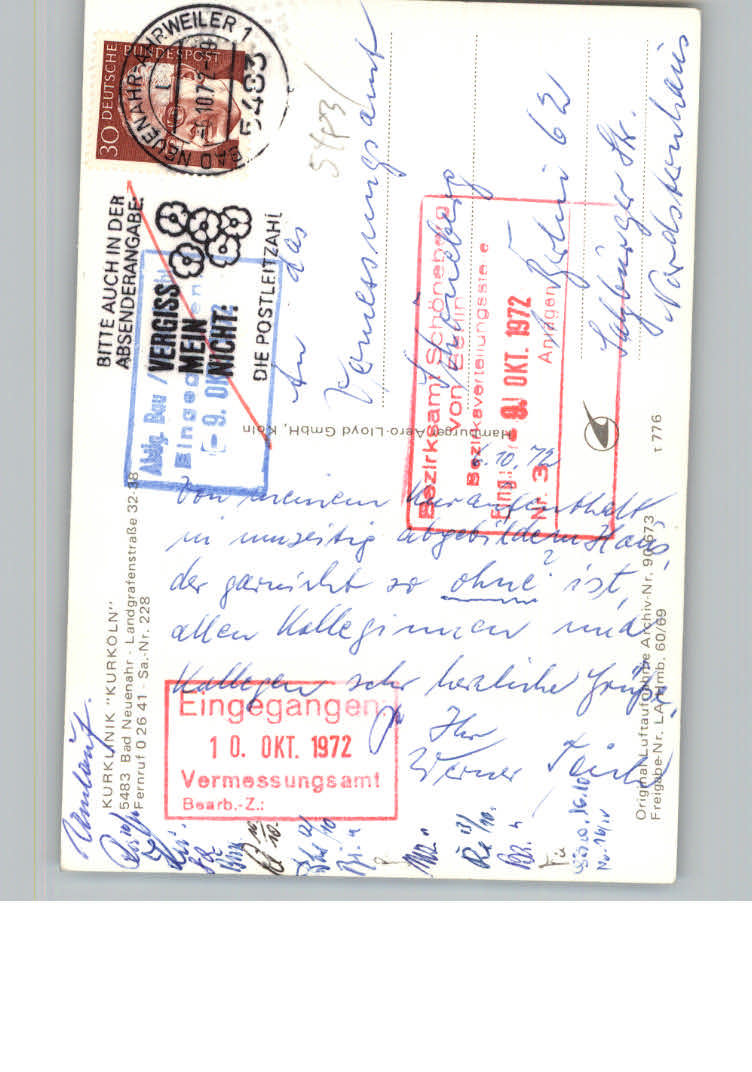 DEUTSCHE BUNDESPOST
30
BAD NEUENAHR-AHRWEILER 1
5483
BITTE AUCH IN DER
ABSENDERANGABE:
VERGISS
MEIN
NICHT:
DIE POSTLEITZAHL
5483
An das
Vermessungsamt
Schöneberg
1 Berlin 62
Salzburger Str.
Nordsternhaus
Eingegangen
9. OKT.
Bezirksamt Schöneberg
von Berlin
Bezirksverteilungsstelle
9. OKT. 1972
Anlagen
Nr. 3
Hamburger Aero-Lloyd GmbH, Köln
τ 776
KURKLINIK "KURKÖLN"
5483 Bad Neuenahr · Landgrafenstraße 32-38
Fernruf 0 26 41 · Sa.-Nr. 228
.10.72
Von meinem Kuraufenthalt
in umseitig abgebildetem Haus,
der garnicht so "ohne" ist,
allen Kolleginnen und
Kollegen sehr herzliche Grüße
Ihr
Werner
Eingegangen
10. OKT. 1972
Vermessungsamt
Bearb.-Z.:
Umlauf.
Original-Luftaufnahme Archiv-Nr. 90 673
Freigabe-Nr. LA Hmb. 60/69